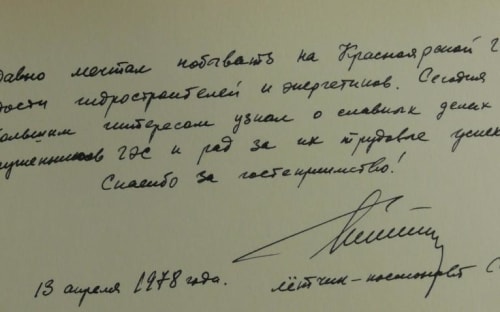 Давно мечтал побывать на Красноярской Г
дости гидростроителей и энергетиков. Сегодня
большим интересом узнал о славных делах
тружеников ГЭС и рад за их трудовые успех
Спасибо за гостеприимство!
13 апреля 1978 года.
лётчик-космонавт С